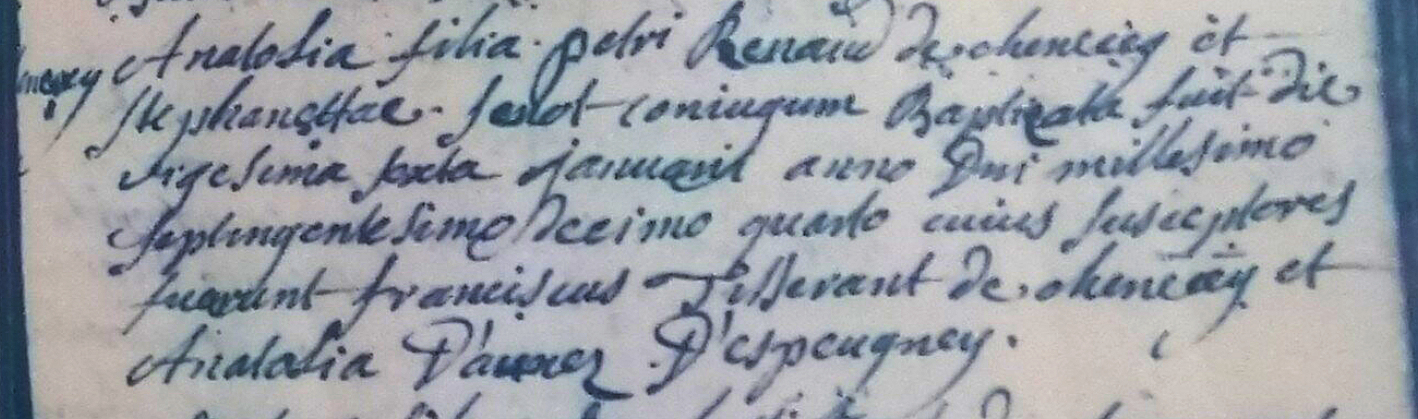 Anatosia filia petri Renaud de chencey et
stephanettae conjugum Baptizata fuit die
vigesima sexta januarii anno Dni millesimo
septingentesimo decimo quarto cuius susceptores
fuerunt franciscus Tisserant de chencey et
Anatosia D'auxez D'espeugney.